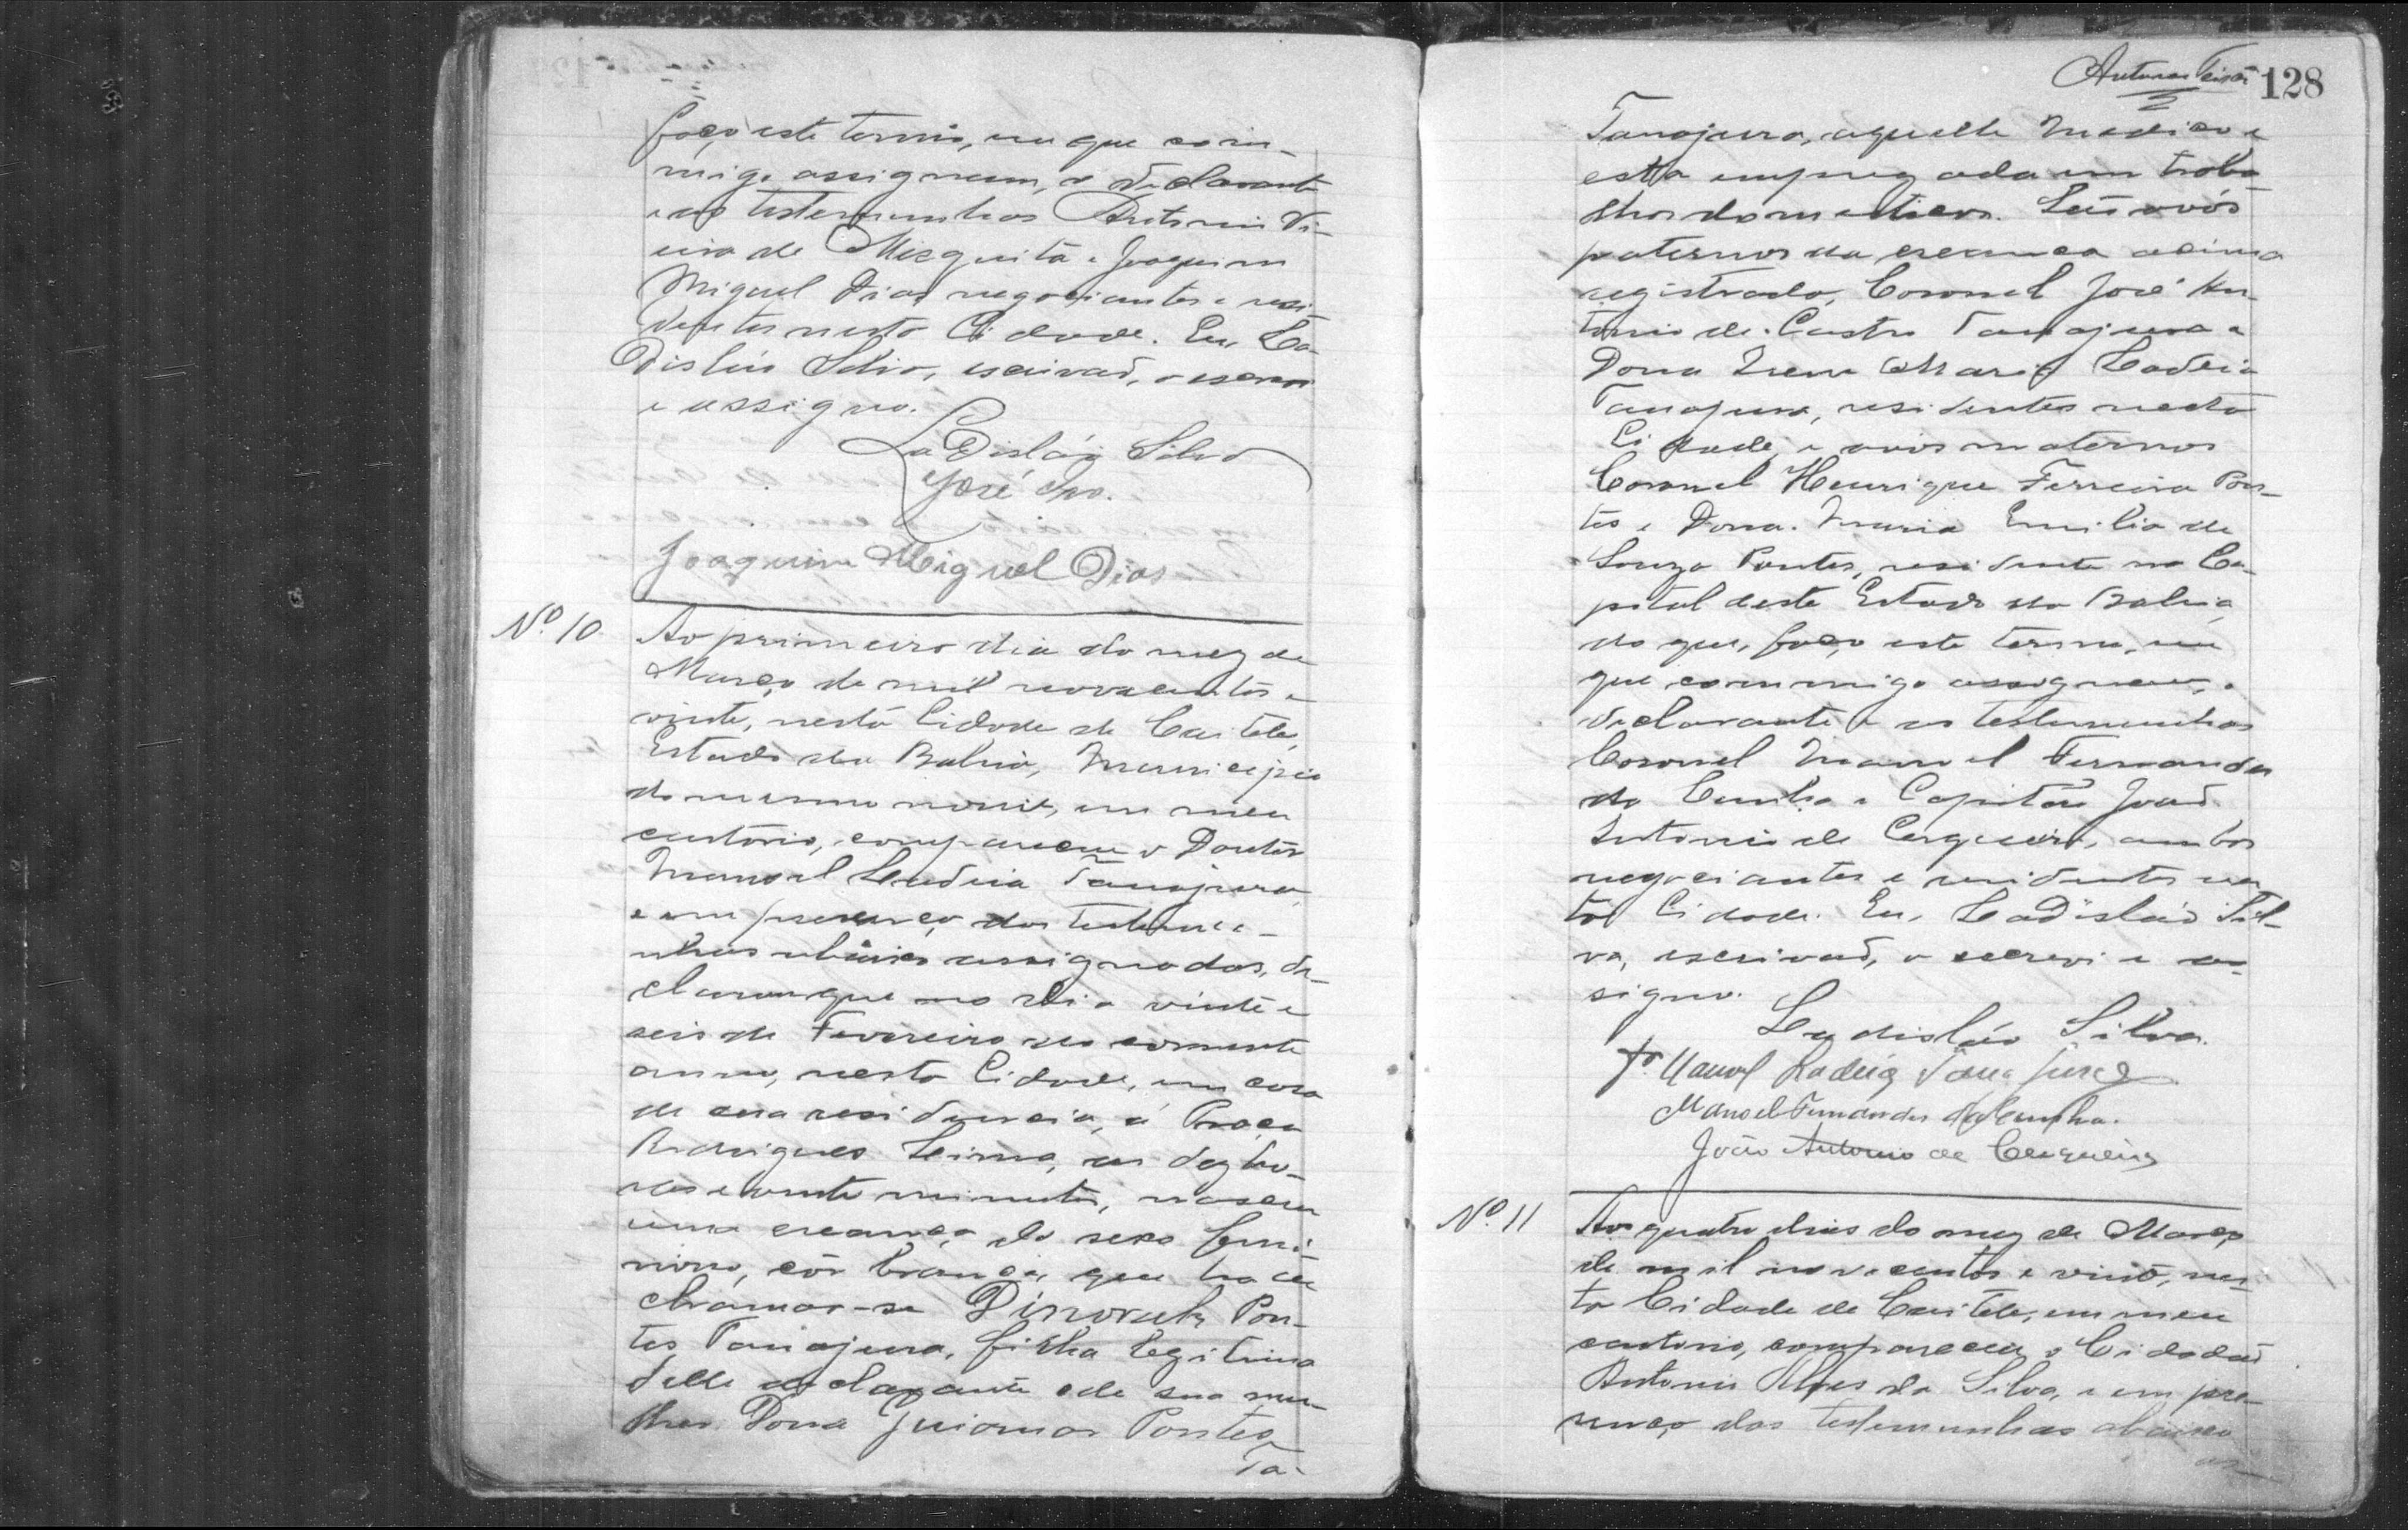 faço este termo, em que com-
migo assignam, o declarante
e as testemunhas Antonio Vi-
eira de Mesquita e Joaquim
Miguel Dias negociantes e resi-
dentes nesta Cidade. Eu, La-
disláo Silva, escrivaõ, o escrevi
e assigno.
Ladisláo Silva
José
Joaquim Miguel Dias
Nº. 10
Ao primeiro dia do mez de
Março de mil novecentos e
vinte, nesta Cidade de Caiteté,
Estado da Bahia, Municipio
do mesmo nome, em meu
cartorio, compareceu o Doutor
Manoel Ladeia Tanajura,
e em presença das testemu-
nhas abaixo assignadas, de-
clarou que no dia vinte e
seis de Fevereiro do corrente
anno, nesta Cidade, em casa
de sua residencia, á Praça
Rodrigues Lima, as dez ho-
ras e vinte minutos, nasceu
uma creança do sexo femi-
nino, côr branca, que ha de
chamar-se Dinorah Pon-
tes Tanajura, filha legitima
delle declarante e de sua mu-
lher Dona Guiomar Pontes
Ta-
128
Tanajura, aquelle medico e
esta empregada em traba-
lhos domesticos. Saõ avós
paternos da creança acima
registrada, Coronel José An-
tonio de Castro Tanajura e
Dona Irene Maria Ladeia
Tanajura, residentes nesta
Cidade, e avós maternos
Coronel Henrique Ferreira Pon-
tes e Dona Maria Emilia de
Souza Pontes, residente na Ca-
pital deste Estado da Bahia,
do que, faço este termo, em
que commigo assignam, o
declarante e as testemunhas
Coronel Manoel Fernandes
da Cunha e Capitaõ Joaõ
Antonio de Cerqueira, ambos
negociantes e residentes nes-
ta Cidade. Eu, Ladisláo Sil-
va, escrivaõ, o escrevi e as-
signo.
Ladisláo Silva.
Manoel Ladeia Tanajura
Manoel Fernandes da Cunha.
João Antonio de Cerqueira
Nº. 11
Aos quatro dias do mez de Março
de mil novecentos e vinte, nes-
ta Cidade de Caiteté, em meu
cartorio, compareceu o Cidadaõ
Antonio Alves da Silva, e em pre-
sença das testemunhas abaixo
as-